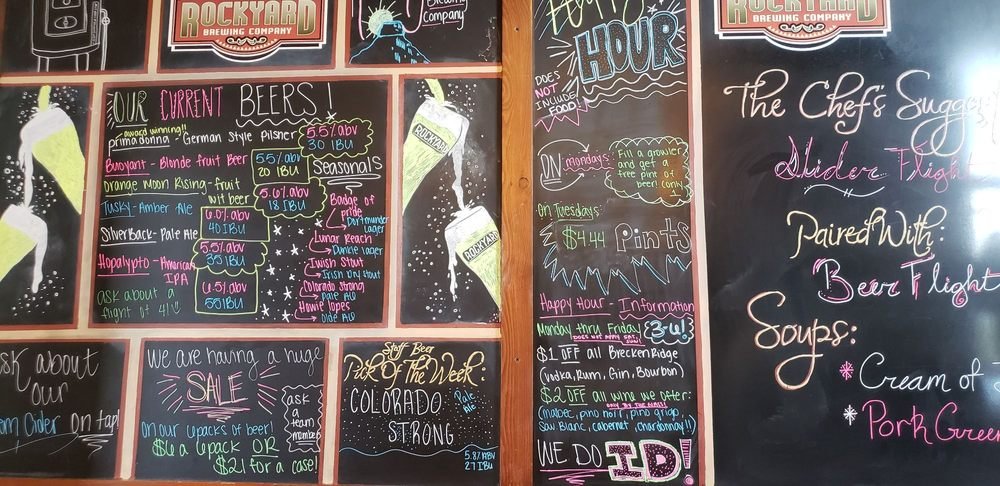 ROCKYARD
BREWING COMPANY
Brewing
Company
OUR CURRENT BEERS!
award winning!!
primadonna - German Style Pilsner
5.5% abv
30 IBU
Buoyant - Blonde fruit Beer
5.5% abv
20 IBU
Orange Moon Rising - fruit
wit beer
5.6% abv
18 IBU
Tusky - Amber Ale
6.0% abv
40 IBU
SilverBack - Pale Ale
5.5% abv
35 IBU
Hopalypto - American
IPA
6.5% abv
55 IBU
ask about a
flight of 4!
Seasonals
Badge of
pride
Dortmunder
Lager
Lunar Reach
Dunkle lager
Irwish Stout
Irish dry stout
Colorado Strong
Pale Ale
Howie Jopes
Olde Ale
ROCKYARD
ROCKYARD
ask about
our
Cider on tap!
we are having a huge
SALE
ask
a
team
member
on our 6packs of beer!
$6 a 6pack OR
$21 for a case!
Staff Beer
Pick Of The Week:
COLORADO
STRONG
Pale
Ale
5.8% ABV
27 IBU
HOUR
DOES
NOT
INCLUDE
FOOD
ON mondays:
Fill a growler
and get a
free pint of
beer!
on Tuesdays:
$4.44 Pints
Happy Hour - Information
Monday thru Friday 3-6!
DOES NOT APPLY SAT, SUN!
$1 OFF all BreckenRidge
(Vodka, Rum, Gin, Bourbon)
$2 OFF all wine we offer:
ONLY BY THE GLASS!
(malbec, pino noir, pino grigo,
Sav Blanc, cabernet, chardonnay!!)
WE DO ID!
ROCKYARD
BREWING COMPANY
The Chef's
Slider Flight
Paired With:
Beer Flight
Soups:
* Cream of
* Pork Green